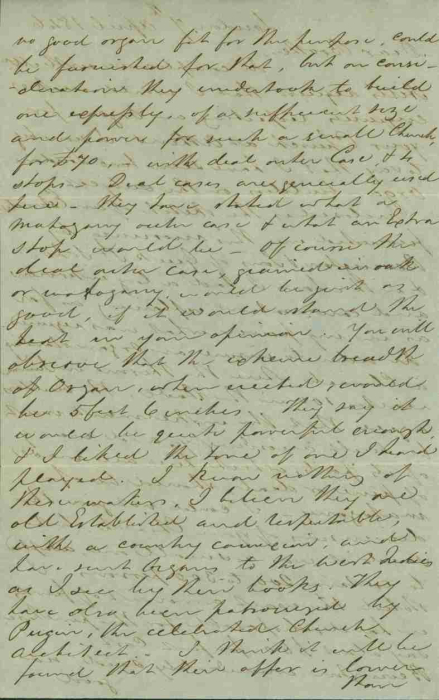 no good organ fit for the purpose, could
be furnished for that, but on consi-
-deration they undertook to build
one expressly, of a sufficient size
and power for such a small Church,
for £70 .. with deal outer Case & 4
stops - Deal cases are generally used
here - they have stated what a
Mahogany outer case & what an Extra
stop would be - Of course the
deal outer case, grained in oak
or mahogany would be just as
good, if it would stand the
heat in your opinion. You will
observe that the extreme breadth
of Organ when erected would
be 5 feet 6 inches They say it
would be quite powerful enough
& I liked the tone of one I heard
played. I know nothing of
these makers, I believe they are
old Established and respectable,
with a country connexion, and
have sent Organs to the West Indies
as I see by their books. They
have also been patronized by
Pugin, the celebrated Church
Architect - I think it will be
found that their offer is lower
than